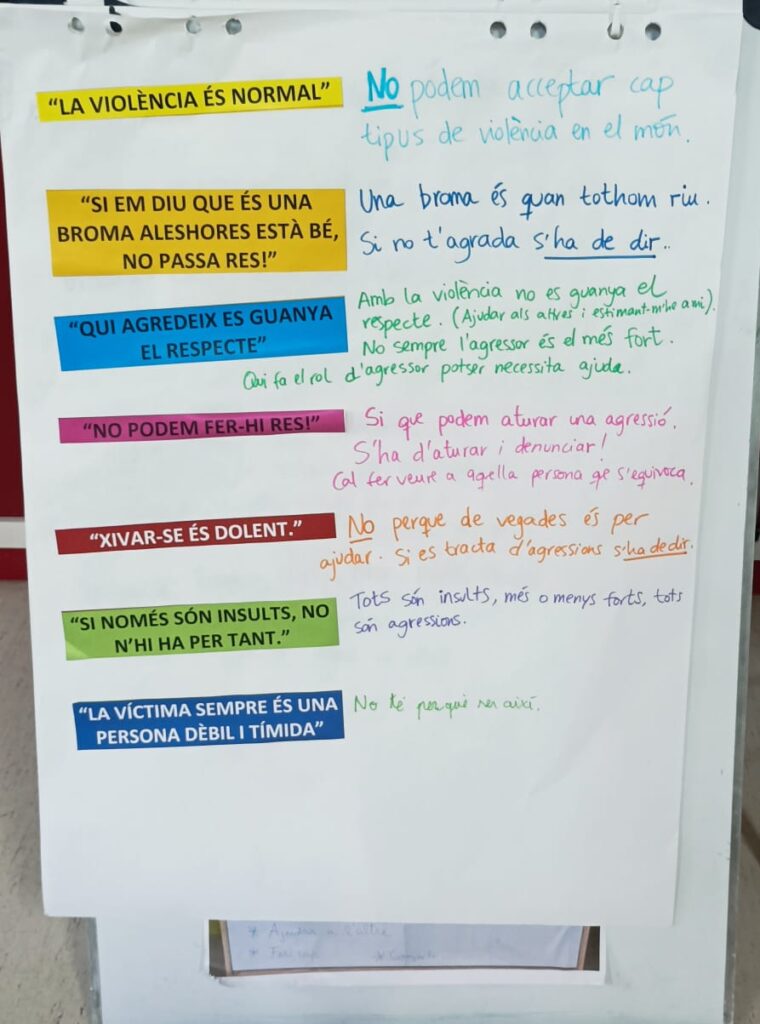 "LA VIOLÈNCIA ÉS NORMAL"
No podem acceptar cap
tipus de violència en el món.
"SI EM DIU QUE ÉS UNA
BROMA ALESHORES ESTÀ BÉ,
NO PASSA RES!"
Una broma és quan tothom riu.
Si no t'agrada s'ha de dir..
"QUI AGREDEIX ES GUANYA
EL RESPECTE"
Amb la violència no es guanya el
respecte. (Ajudar als altres i estimant-m'he a mi).
No sempre l'agressor és el més fort.
Qui fa el rol d'agressor potser necessita ajuda.
"NO PODEM FER-HI RES!"
Si que podem aturar una agressió.
S'ha d'aturar i denunciar!
Cal fer veure a aqella persona qe s'equivoca.
"XIVAR-SE ÉS DOLENT."
No perque de vegades és per
ajudar. Si es tracta d'agressions s'ha de dir.
"SI NOMÉS SÓN INSULTS, NO
N'HI HA PER TANT."
Tots són insults, més o menys forts, tots
són agressions.
"LA VÍCTIMA SEMPRE ÉS UNA
PERSONA DÈBIL I TÍMIDA"
No té perquè ser així.
* Ajudar a l'altre